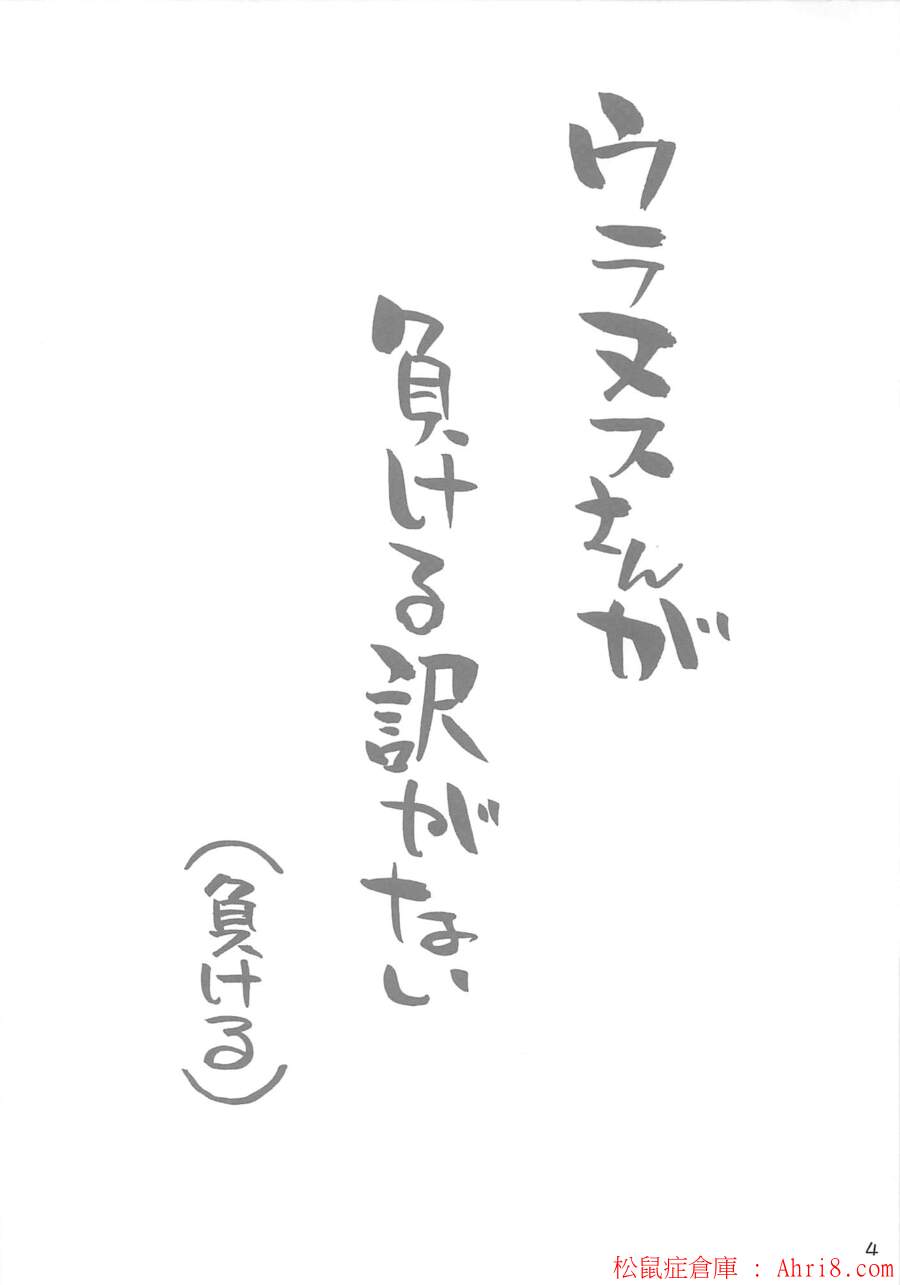 ウラヌスさんが
負ける訳がない
(負ける)
4
松鼠症倉庫 : Ahri8.com